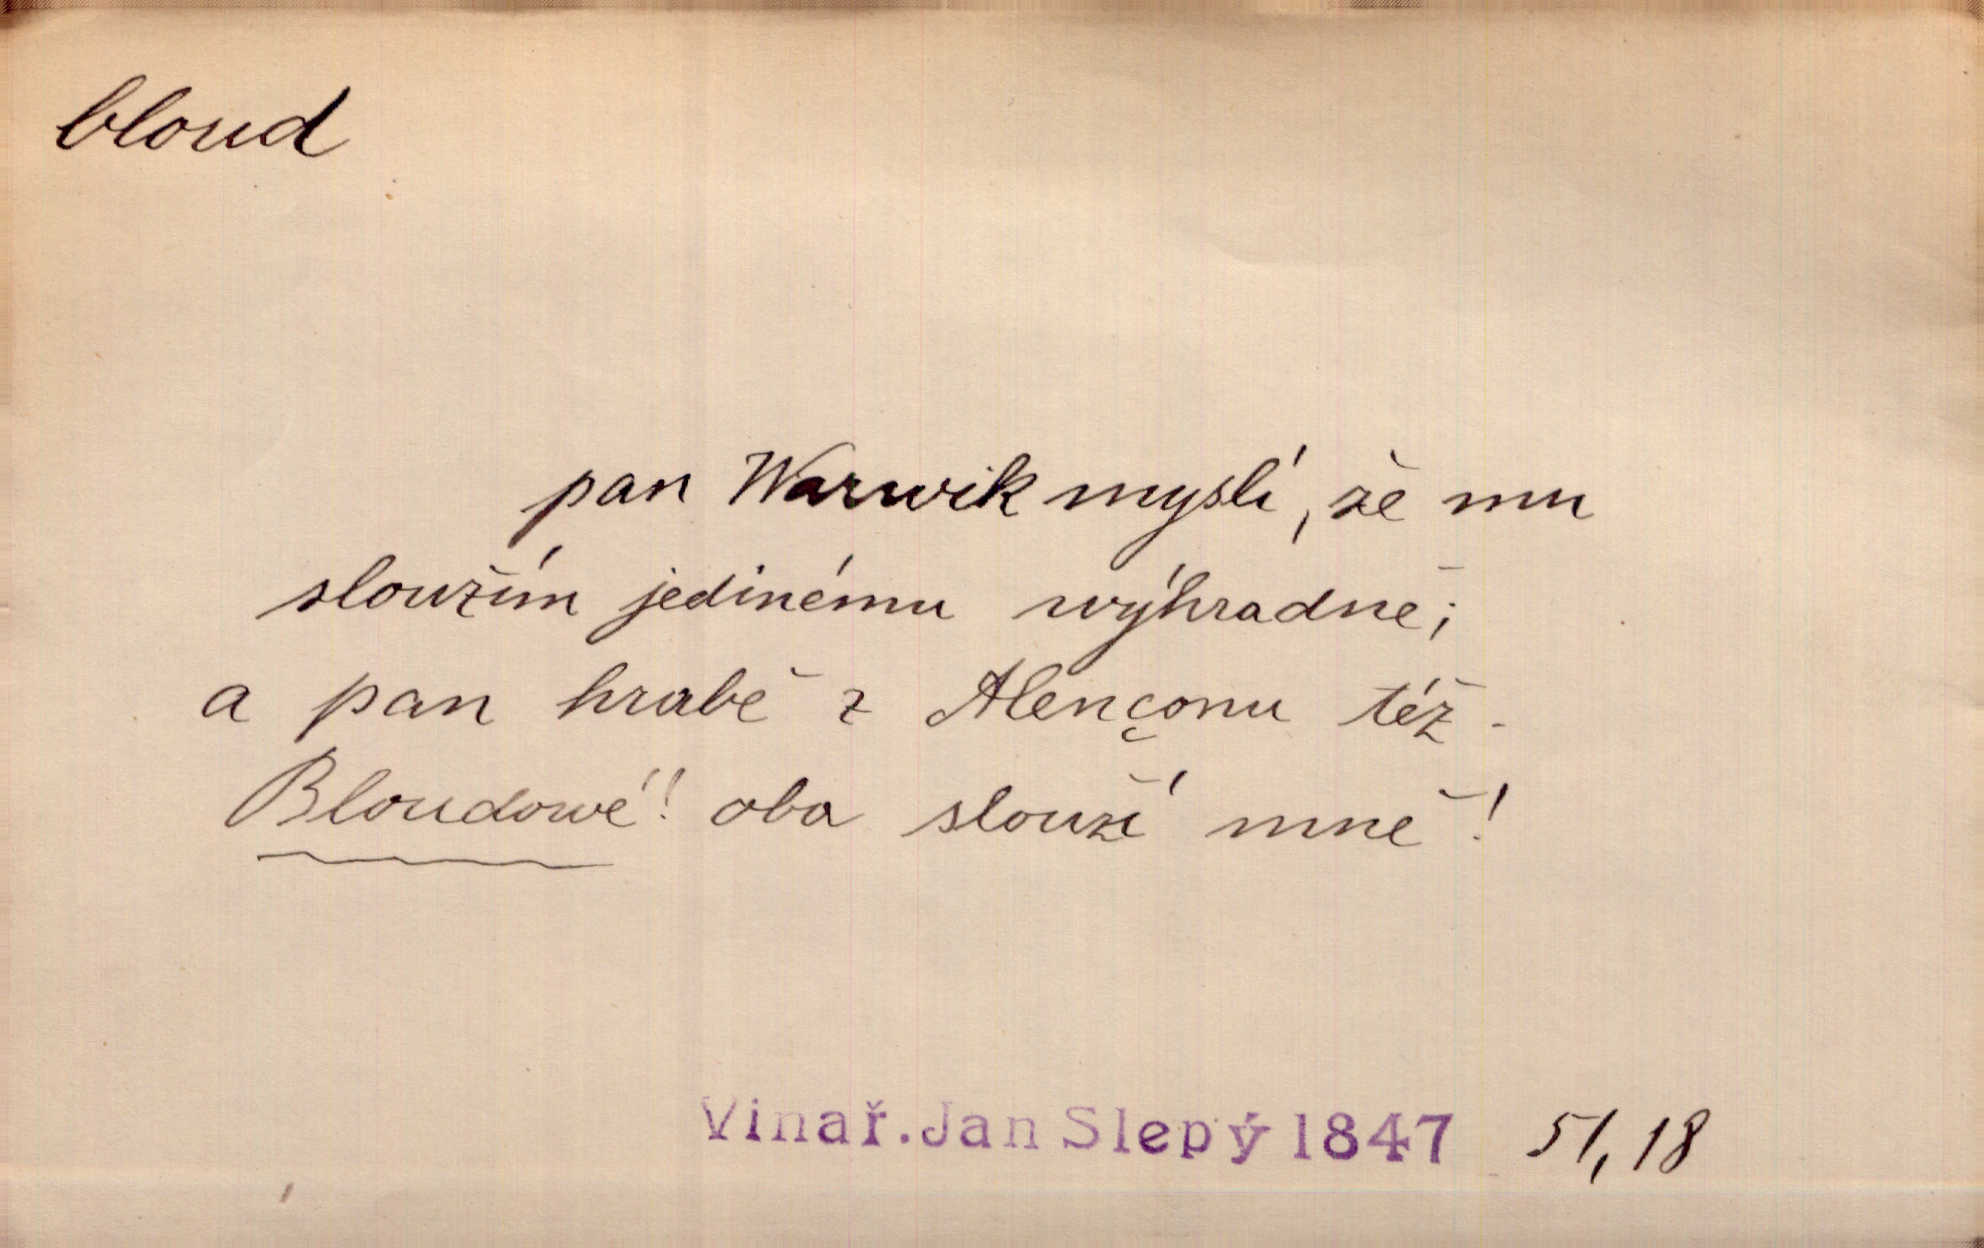 bloud
pan Warwik myslí, že mu
sloužím jedinému wýhradně;
a pan hrabě z Alençonu též -
Bloudowé! oba slouží mně!
Vinař. Jan Slepý 1847 51, 18